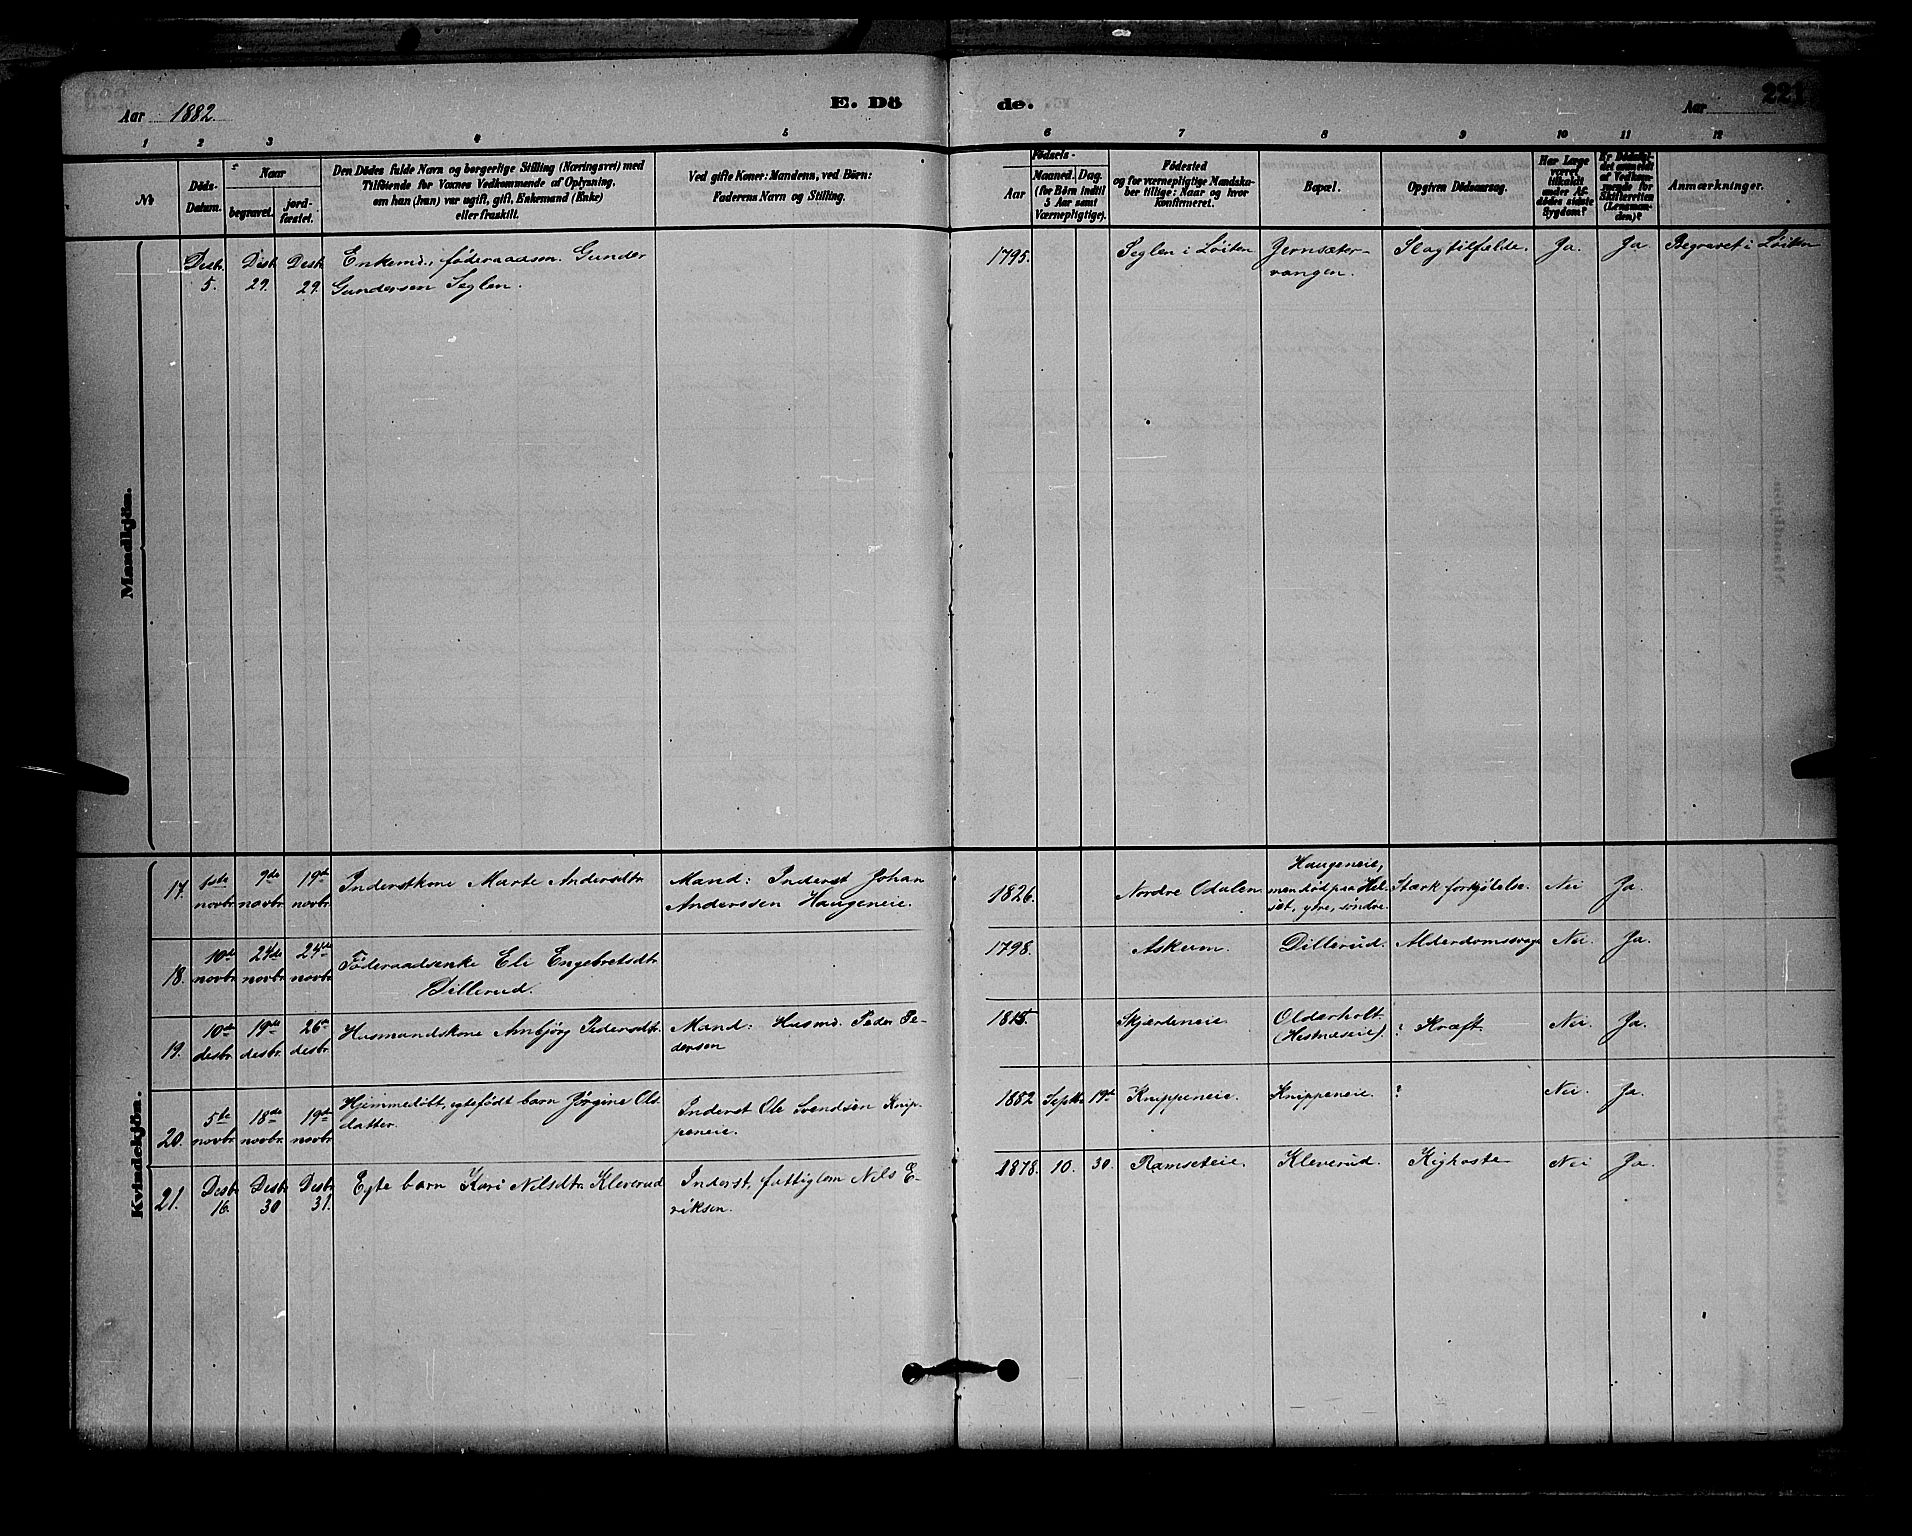 Aar 1882.
E. Dö
de.
Aar
221
1 2 3 4 5 6 7 8 9 10 11 12
№
Döds-
Datum.
Naar
begravet.
jord-
fæstet.
Den Dödes fulde Navn og borgerlige Stilling (Næringsvei) med
Tilföiende for Voxnes Vedkommende af Oplysning,
om han (hun) var ugift, gift, Enkemand (Enke)
eller fraskilt.
Ved gifte Koner: Mandens, ved Börn:
Faderens Navn og Stilling.
Födsels-
Aar
Maaned. Dag.
(for Börn indtil
5 Aar samt
Værnepligtige).
Födested
og for værnepligtige Mandska-
ber tillige: Naar og hvor
konfirmeret.
Bopæl.
Opgiven Dödsaarsag.
Har Læge
været
tilkaldt
under Af-
dödes sidste
Sygdom?
Er Dödsfal-
det anmeldt
af Vedkom-
mende for
Skifteretten
(Lensman-
den)?
Anmærkninger.
Mandkjön.
Desbr. 5. Desbr. 29. Desbr. 29. Enkemd., föderaadsm. Gunder
Gundersen Seglen.
1795. Seglen i Löiten Jernsæter-
vangen. Slagtilfælde. Ja. Ja. Begravet i Löiten
Kvindekjön.
17. novbr. 9de novbr. 19de novbr. Inderstkone Marte Andersdtr. Mand: Inderst Johan
Anderssen Haugeneie.
1826. Nordre Odalen Haugeneie,
men död paa Hel-
set, ytre, söndre. Stærk forkjölelse. Nei Ja.
18. 10de novbr. 24de novbr. 24de novbr. Föderaadsenke Eli Engebretsdtr.
Dillerud.
1798. Askum. Dillerud. Alderdomssvagh. Nei Ja.
19. 10de desbr. 19de desbr. 26de desbr. Husmandskone Anbjörg Pedersdtr. Mand: Husmd. Peder Pe-
dersen
1815 Skjærdeneie. Olderholt
(Hestnæseie). ? Kræft. Nei. Ja.
20. 5te novbr. 18de novbr. 19de novbr. Hjemmedöbt, egtefödt barn Jörgine Ols-
datter. Inderst Ole Svendsen Knip-
peneie.
1882 Septbr. 19de Knippeneie. Knippeneie. ? Nei. Ja.
21. Desbr. 16. Desbr. 30 Desbr. 31. Egte barn Kari Nilsdtr. Kleverud Inderst, fattiglem Nils E-
riksen.
1878. 10. 30. Ramseteie. Kleverud. Kighoste Nei Ja.